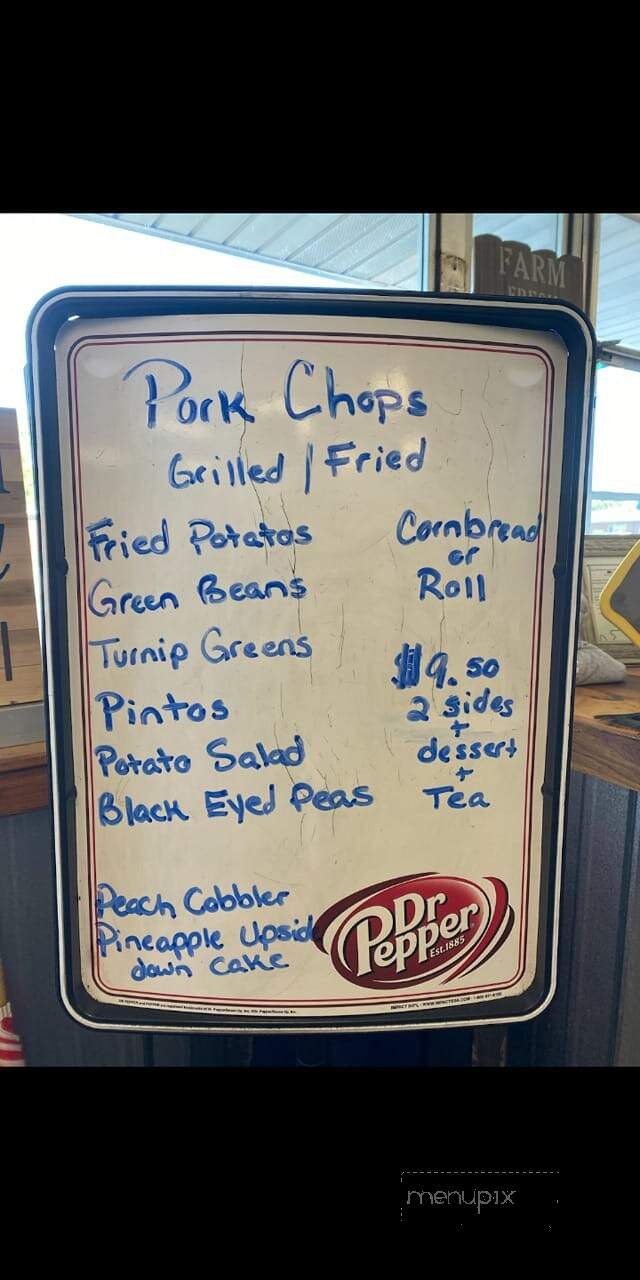 FARM
Pork Chops
Grilled / Fried
Fried Potatos
Green Beans
Turnip Greens
Pintos
Potato Salad
Black Eyed Peas
Cornbread
or
Roll
9.50
2 sides
+
dessert
+
Tea
Peach Cobbler
Pineapple Upsid
down cake
Dr
Pepper
Est.1885
menupix